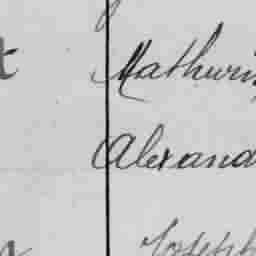 Mathurin
Alexand
Joseph